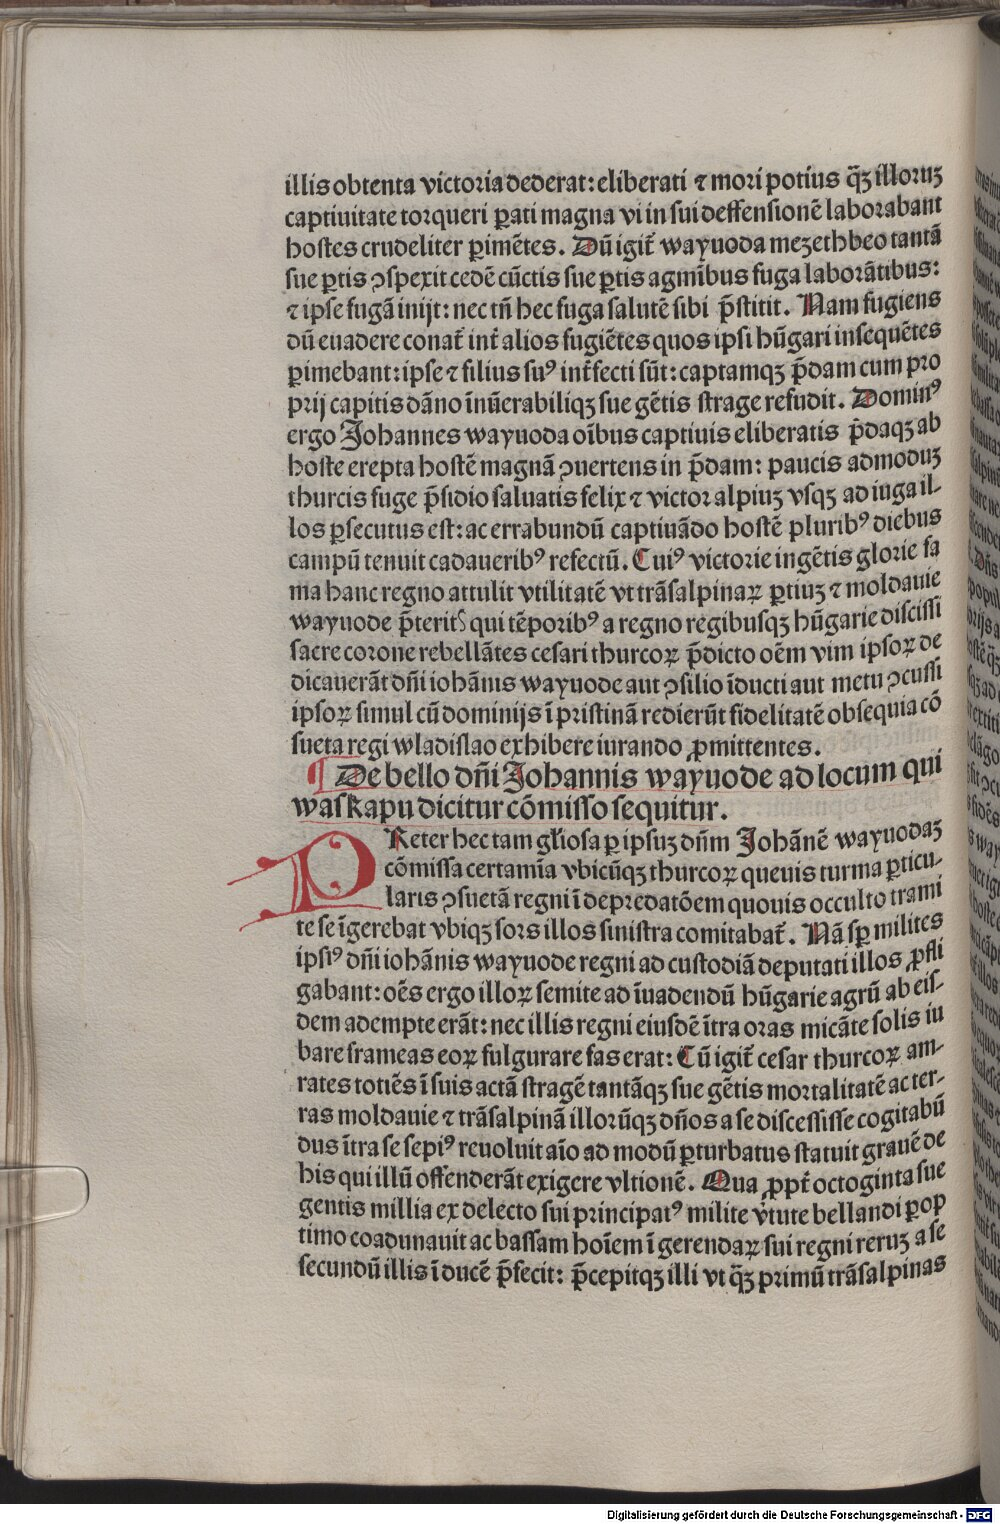 illis obtenta victoria dederat: eliberati ⁊ mori potius q̃ꝫ illoruꝫ
captiuitate torqueri ꝑati magna vi in sui deffensionē laborabant
hostes crudeliter ꝑimētes. Dū igit̃ wayuoda mezethbeo tantā
sue ꝑtis ꝯspexit cedē cūctis sue ꝑtis agmībus fuga laborātibus:
⁊ ipse fugā inijt: nec tñ hec fuga salutē sibi p̄stitit. Nam fugiens
dū euadere conat̃ int̃ alios fugiētes quos ipsi hūgari insequētes
ꝑimebant: ipse ⁊ filius suꝰ int̃fecti sūt: captamqꝫ p̄dam cum pro
prij capitis dāno īnūerabiliqꝫ sue gētis strage refudit. Dominꝰ
ergo Johannes wayuoda oībus captiuis eliberatis p̄daqꝫ ab
hoste erepta hostē magnā ꝯuertens in p̄dam: paucis admoduꝫ
thurcis fuge p̄sidio saluatis felix ⁊ victor alpiuꝫ vsqꝫ ad iuga il-
los ꝑsecutus est: ac errabundū captiuādo hostē pluribꝰ diebus
campū tenuit cadaueribꝰ refectū. Cuiꝰ victorie ingētis glorie fa
ma hanc regno attulit vtilitatē vt trāsalpinaꝝ ꝑtiuꝫ ⁊ moldauie
wayuode p̄teritꝭ qui tēporibꝰ a regno regibusqꝫ hūgarie discissi
sacre corone rebellātes cesari thurcoꝝ p̄dicto oēm vim ipsoꝝ de
dicauerāt dñi iohānis wayuode aut ꝯsilio īducti aut metu ꝯcussi
ipsoꝝ simul cū dominijs ī pristinā redierūt fidelitatē obsequia cō
sueta regi wladislao exhibere iurando ꝓmittentes.
¶ De bello dñi Johannis wayuode ad locum qui
waskapu dicitur cōmisso sequitur.
PReter hec tam gl̄iosa ꝑ ipsuꝫ dñm Johānē wayuodaꝫ
cōmissa certamīa vbicūqꝫ thurcoꝝ queuis turma ꝑticu-
laris ꝯsuetā regni ī depredatōem quouis occulto trami
te se īgerebat vbiqꝫ sors illos sinistra comitabat̃. Nā sꝑ milites
ipsiꝰ dñi iohānis wayuode regni ad custodiā deputati illos ꝓfli
gabant: oēs ergo illoꝝ semite ad īuadendū hūgarie agrū ab eis-
dem adempte erāt: nec illis regni eiusdē ītra oras micāte solis iu
bare frameas eoꝝ fulgurare fas erat: Cū igit̃ cesar thurcoꝝ am-
rates totiēs ī suis actā stragē tantāqꝫ sue gētis mortalitatē ac ter-
ras moldauie ⁊ trāsalpinā illorūqꝫ dños a se discessisse cogitabū
dus ītra se sepiꝰ reuoluit aīo ad modū ꝑturbatus statuit grauē de
his qui illū offenderāt exigere vltionē. Qua ꝓpt̃ octoginta sue
gentis millia ex delecto sui principatꝰ milite v̄tute bellandi ꝑop
timo coadunauit ac bassam hoīem ī gerendaꝝ sui regni reruꝫ a se
secundū illis ī ducē p̄fecit: p̄cepitqꝫ illi vt q̃ꝫ primū trāsalpinas
Digitalisierung gefördert durch die Deutsche Forschungsgemeinschaft - DFG